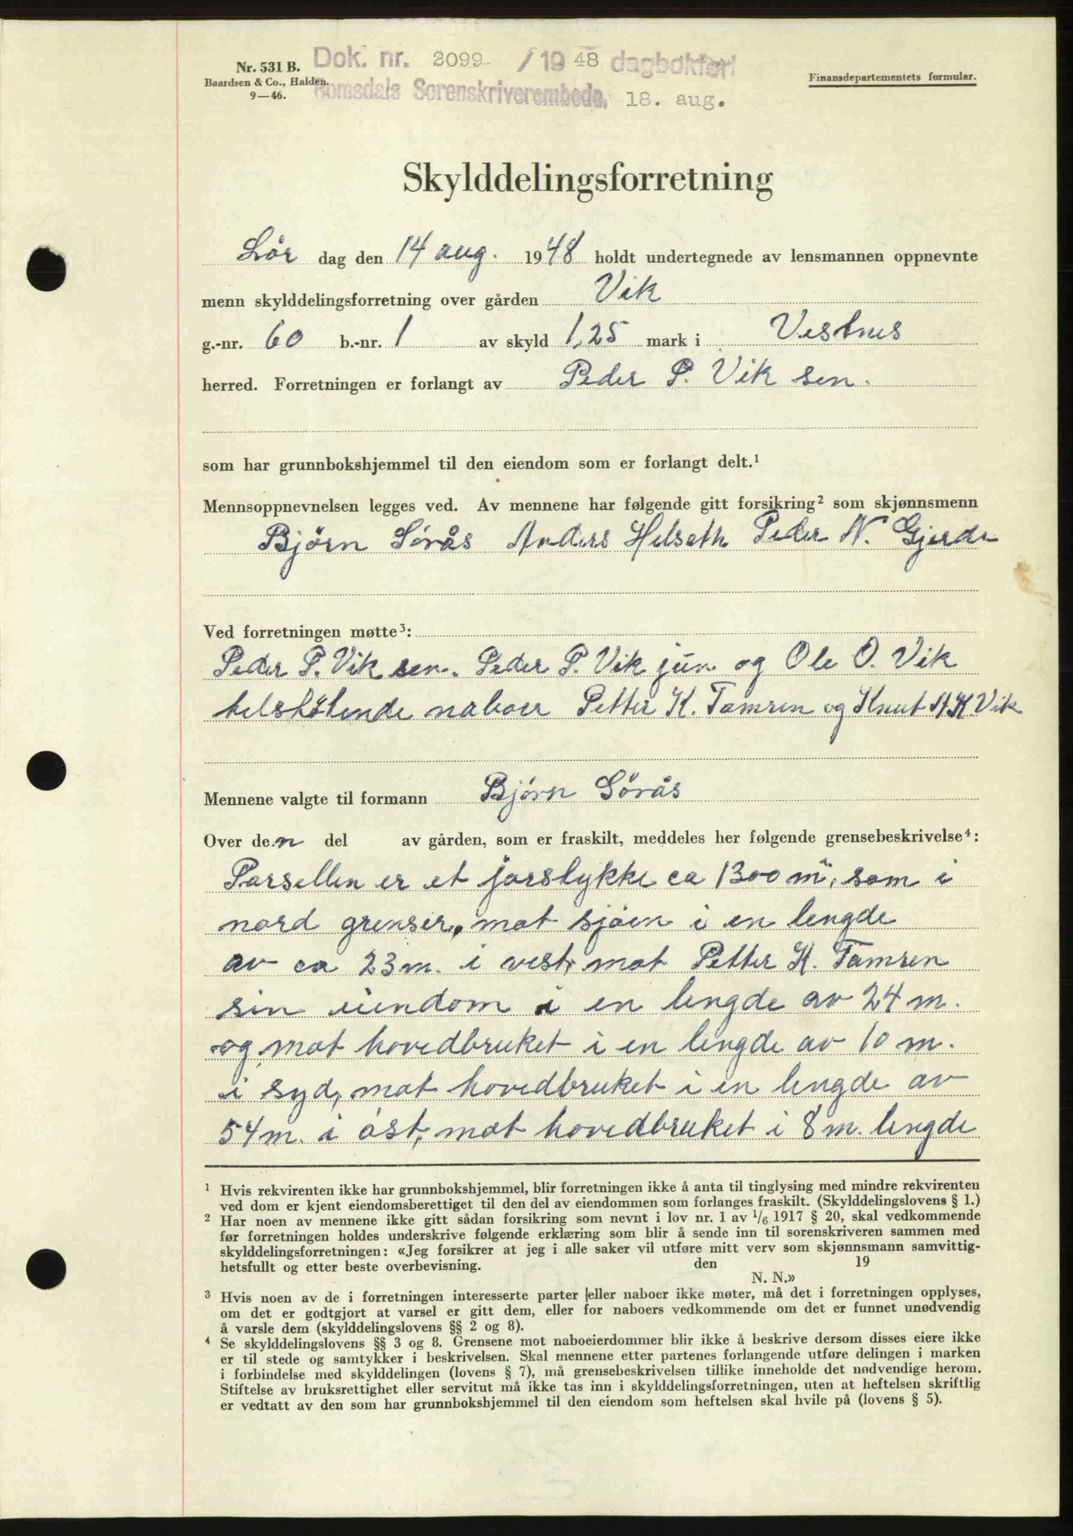 Nr. 531 B.
Baardsen & Co., Halden.
9—46.
Dok. nr. 2099 / 1948 dagbokført
Romsdals Sorenskriverembede, 18. aug.
Finansdepartementets formular.
Skylddelingsforretning
Lör dag den 14 aug. 1948 holdt undertegnede av lensmannen oppnevnte
menn skylddelingsforretning over gården Vik
g.-nr. 60 b.-nr. 1 av skyld 1,25 mark i Vestnes
herred. Forretningen er forlangt av Peder P. Vik sen.
som har grunnbokshjemmel til den eiendom som er forlangt delt.¹
Mennsoppnevnelsen legges ved. Av mennene har følgende gitt forsikring² som skjønnsmenn
Bjørn Sørås Anders Helseth Peder N. Gjerde
Ved forretningen møtte³:
Peder P. Vik sen. Peder P. Vik jun og Ole O. Vik
telstötende naboer Petter K. Tamren og Knut K. Vik
Mennene valgte til formann Bjørn Sørås
Over den del av gården, som er fraskilt, meddeles her følgende grensebeskrivelse⁴:
Parsellen er et jorstykke ca 1300 m², som i
nord grenser, mot sjöen i en lengde
av ca 23 m. i vest, mot Petter K. Tamren
sin eiendom i en lengde av 24 m.
og mot hovedbruket i en lengde av 10 m.
i syd, mot hovedbruket i en lengde av
54 m. i øst, mot hovedbruket i 8 m. lengde
¹ Hvis rekvirenten ikke har grunnbokshjemmel, blir forretningen ikke å anta til tinglysing med mindre rekvirenten
ved dom er kjent eiendomsberettiget til den del av eiendommen som forlanges fraskilt. (Skylddelingslovens § 1.)
² Har noen av mennene ikke gitt sådan forsikring som nevnt i lov nr. 1 av 1/6 1917 § 20, skal vedkommende
før forretningen holdes underskrive følgende erklæring som blir å sende inn til sorenskriveren sammen med
skylddelingsforretningen: «Jeg forsikrer at jeg i alle saker vil utføre mitt verv som skjønnsmann samvittig-
hetsfullt og etter beste overbevisning. den 19
N. N.»
³ Hvis noen av de i forretningen interesserte parter eller naboer ikke møter, må det i forretningen opplyses,
om det er godtgjort at varsel er gitt dem, eller for naboers vedkommende om det er funnet unødvendig
å varsle dem (skylddelingslovens §§ 2 og 8).
⁴ Se skylddelingslovens §§ 3 og 8. Grensene mot naboeierdommer blir ikke å beskrive dersom disses eiere ikke
er til stede og samtykker i beskrivelsen. Skal mennene etter partenes forlangende utføre delingen i marken
i forbindelse med skylddelingen (lovens § 7), må grensebeskrivelsen tillike inneholde det nødvendige herom.
Stiftelse av bruksrettighet eller servitut må ikke tas inn i skylddelingsforretningen, uten at heftelsen skriftlig
er vedtatt av den som har grunnbokshjemmel til den eiendom som heftelsen skal hvile på (lovens § 5).